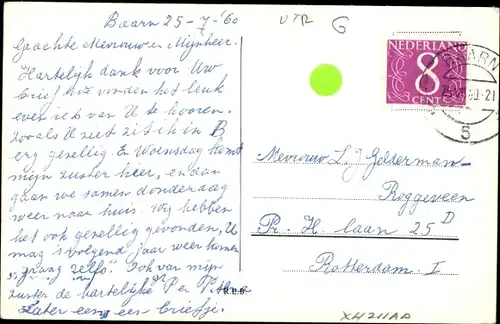 Baarn 25-7-'60
Geachte Mevrouw en Mijnheer.
Hartelijk dank voor Uw
brief. We vonden het leuk
even iets van U te horen.
Zoals U ziet zit ik in B
erg gezellig. En Woensdag komt
mijn zuster hier, en dan
gaan we samen donderdag
weer naar huis. Wij hebben
het ook gezellig gevonden, U
mag 't volgend jaar weer komen
"graag zelfs". Ook van mijn
zuster de hartelijke
Later eens een briefje.
UTR
G
NEDERLAND
8
CENT
BAARN
5
Mevrouw L. J. Gelderman-
Roggeveen
Pr. H. laan 25 D
Rotterdam-I
R.E.B.
XH211AA